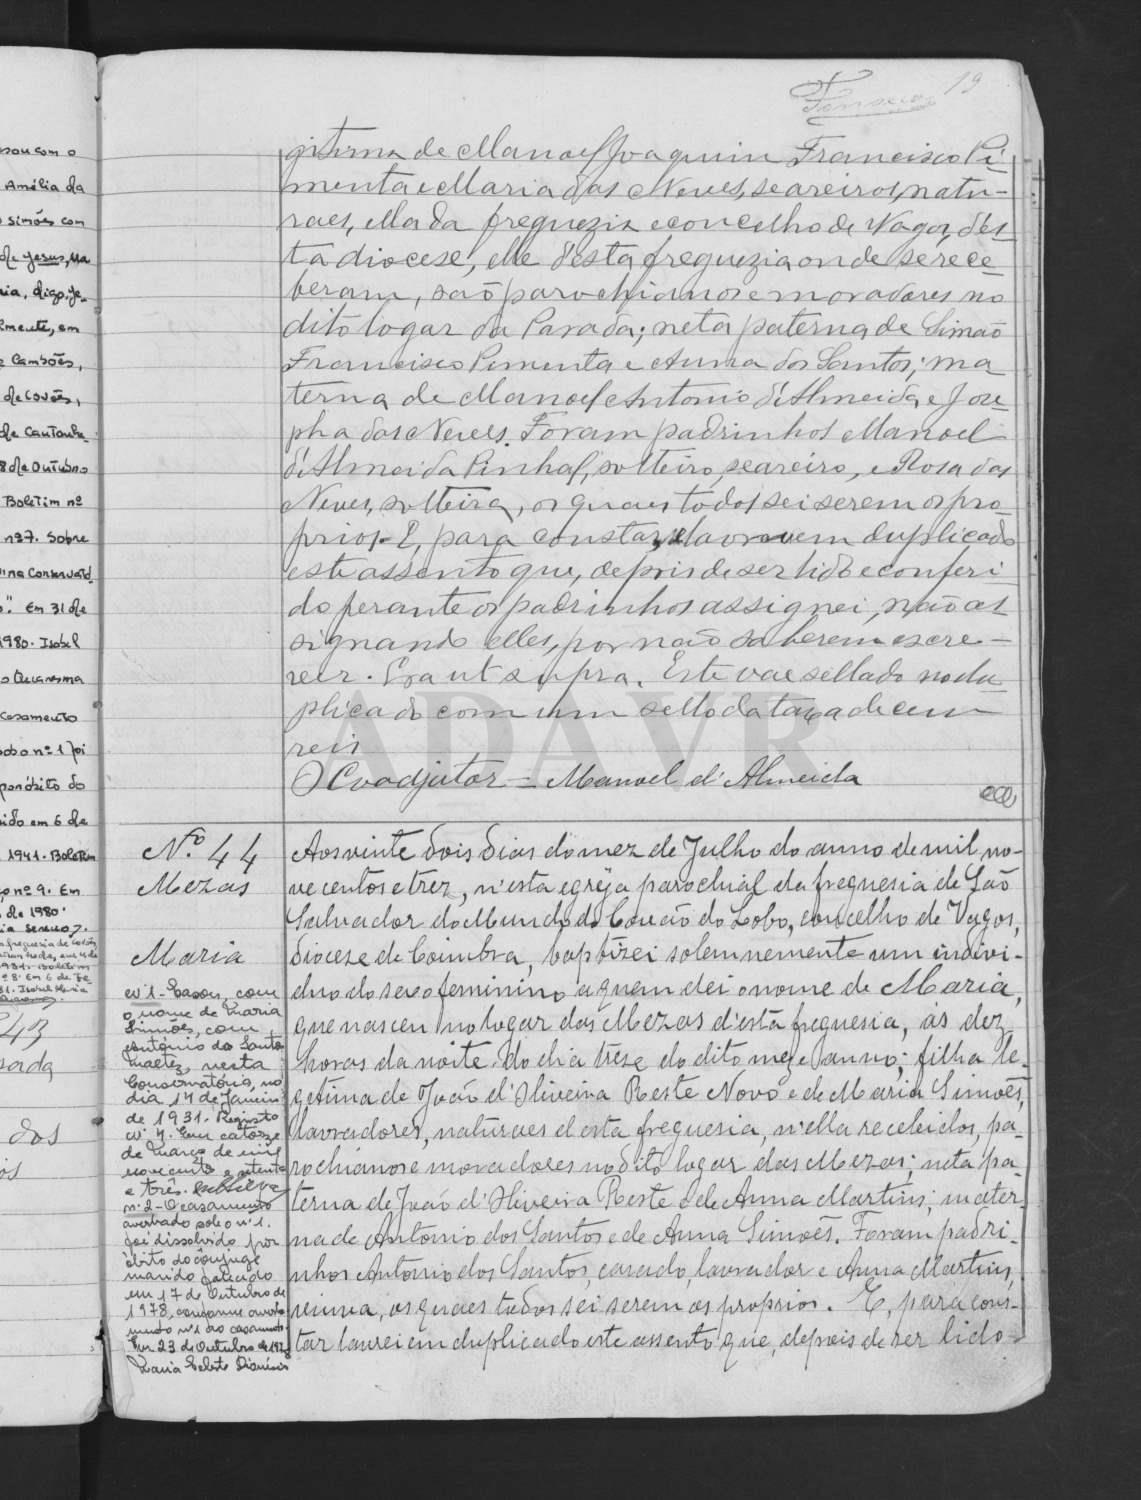 Fonseca 19
gitima de Manoel Joaquim Francisco Pi-
menta e Maria das Neves, seareiros, natu-
raes, ella da freguezia e concelho de Vagos, d'es-
ta diocese, elle d'esta freguezia onde se rece-
beram, são parochianos e moradores no
dito logar da Parada; neta paterna de Simão
Francisco Pimenta e Anna dos Santos; ma
terna de Manoel Antonio d'Almeida e Jose-
pha das Neves. Foram padrinhos Manoel
d'Almeida Pinhal, solteiro, seareiro, e Rosa das
Neves, solteira, os quaes todos sei serem os pro-
prios. E, para constar, lavrou em duplicado
este assento que, depois de ser lido e conferi-
do perante os padrinhos assignei, não as
signando elles, por não saberem escre-
ver. Era ut supra. Este vae sellado no du-
plicado com um sello da taxa de cem
reis
O Coadjutor = Manoel d'Almeida
ADAVR
Nº 44
Mezas
Maria
Aos vinte dois dias do mez de Julho do anno de mil no-
vecentos e trez, n'esta egreja parochial da freguesia de São
Salvador do Mundo do Covão do Lobo, concelho de Vagos,
diocese de Coimbra, baptizei solemnemente um indivi-
duo do sexo feminino a quem dei o nome de Maria,
que nasceu no logar das Mezas d'esta freguesia, ás dez
horas da noite do dia treze do dito mez e anno; filha le-
getima de João d'Oliveira Reste Novo e de Maria Simões,
lavradores, naturaes d'esta freguesia, n'ella recebidos, pa-
rochianos e moradores no dito logar das Mezas; neta pa-
terna de João d'Oliveira Reste e de Anna Martins; mater-
na de Antonio dos Santos e de Anna Simões. Foram padri-
nhos Antonio dos Santos, casado, lavrador e Anna Martins,
viuva, os quaes todos sei serem os proprios. E, para cons-
tar lavrei em duplicado este assento que, depois de ser lido
nº 1 - Casou, com
o nome de Maria
Simões, com
António dos Santos
, nesta
Conservatória, no
dia 17 de Janeiro
de 1931. Registo
nº 4. Em catorze
de Março de mil
novecentos e setenta
e três.
nº 2 - O casamento
averbado sob o nº 1.
foi dissolvido por
óbito do cônjuge
marido falecido
em 17 de Outubro de
1978, conforme averba-
mento nº 1 ao casamento
Em 23 de Outubro de 1978
Maria Celeste Dionísio
sou com o
Amélia da
simões com
de Jesus, Ma
ria, digo, Je-
em
Camões,
de Covões,
de Cantanhe-
8 de Outubro
Boletim nº
nº 37. Sobre
Conservató
Em 31 de
1980. Isabel
Quaresma
Casamento
sob o nº 1 foi
óbito do
ido em 6 de
1941. Boletim
nº 9. Em
de 1980.
43
dos